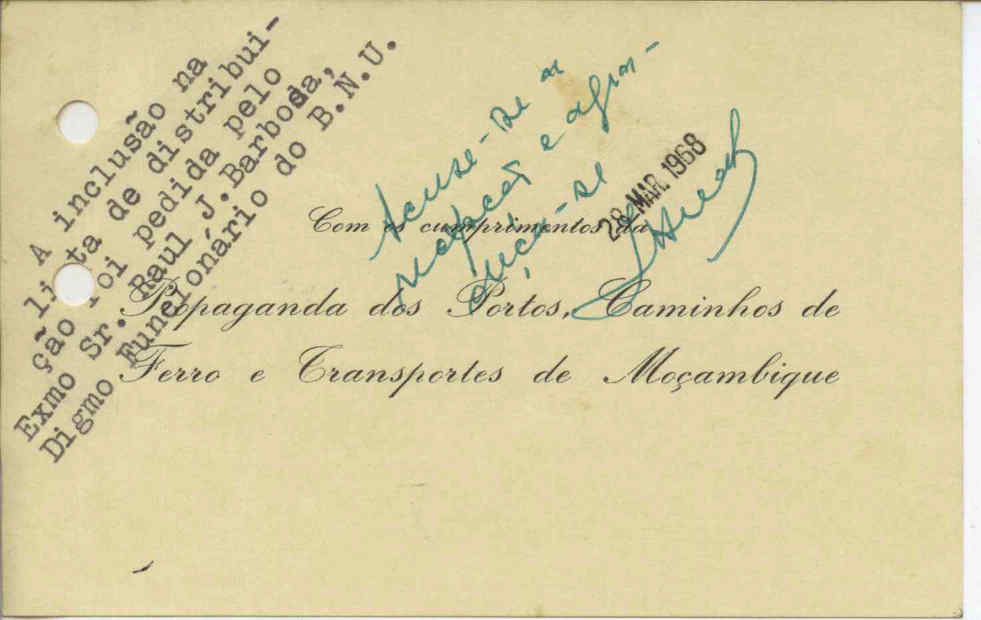 A inclusão na
lista de distribui-
ção foi pedida pelo
Exmo Sr. Raul J.Barbosa,
Digmo Funcionário do B.N.U.
Acuse-se a
recepção e agra-
deça-se
28 MAR. 1968
Com os cumprimentos da
Propaganda dos Portos, Caminhos de
Ferro e Transportes de Moçambique